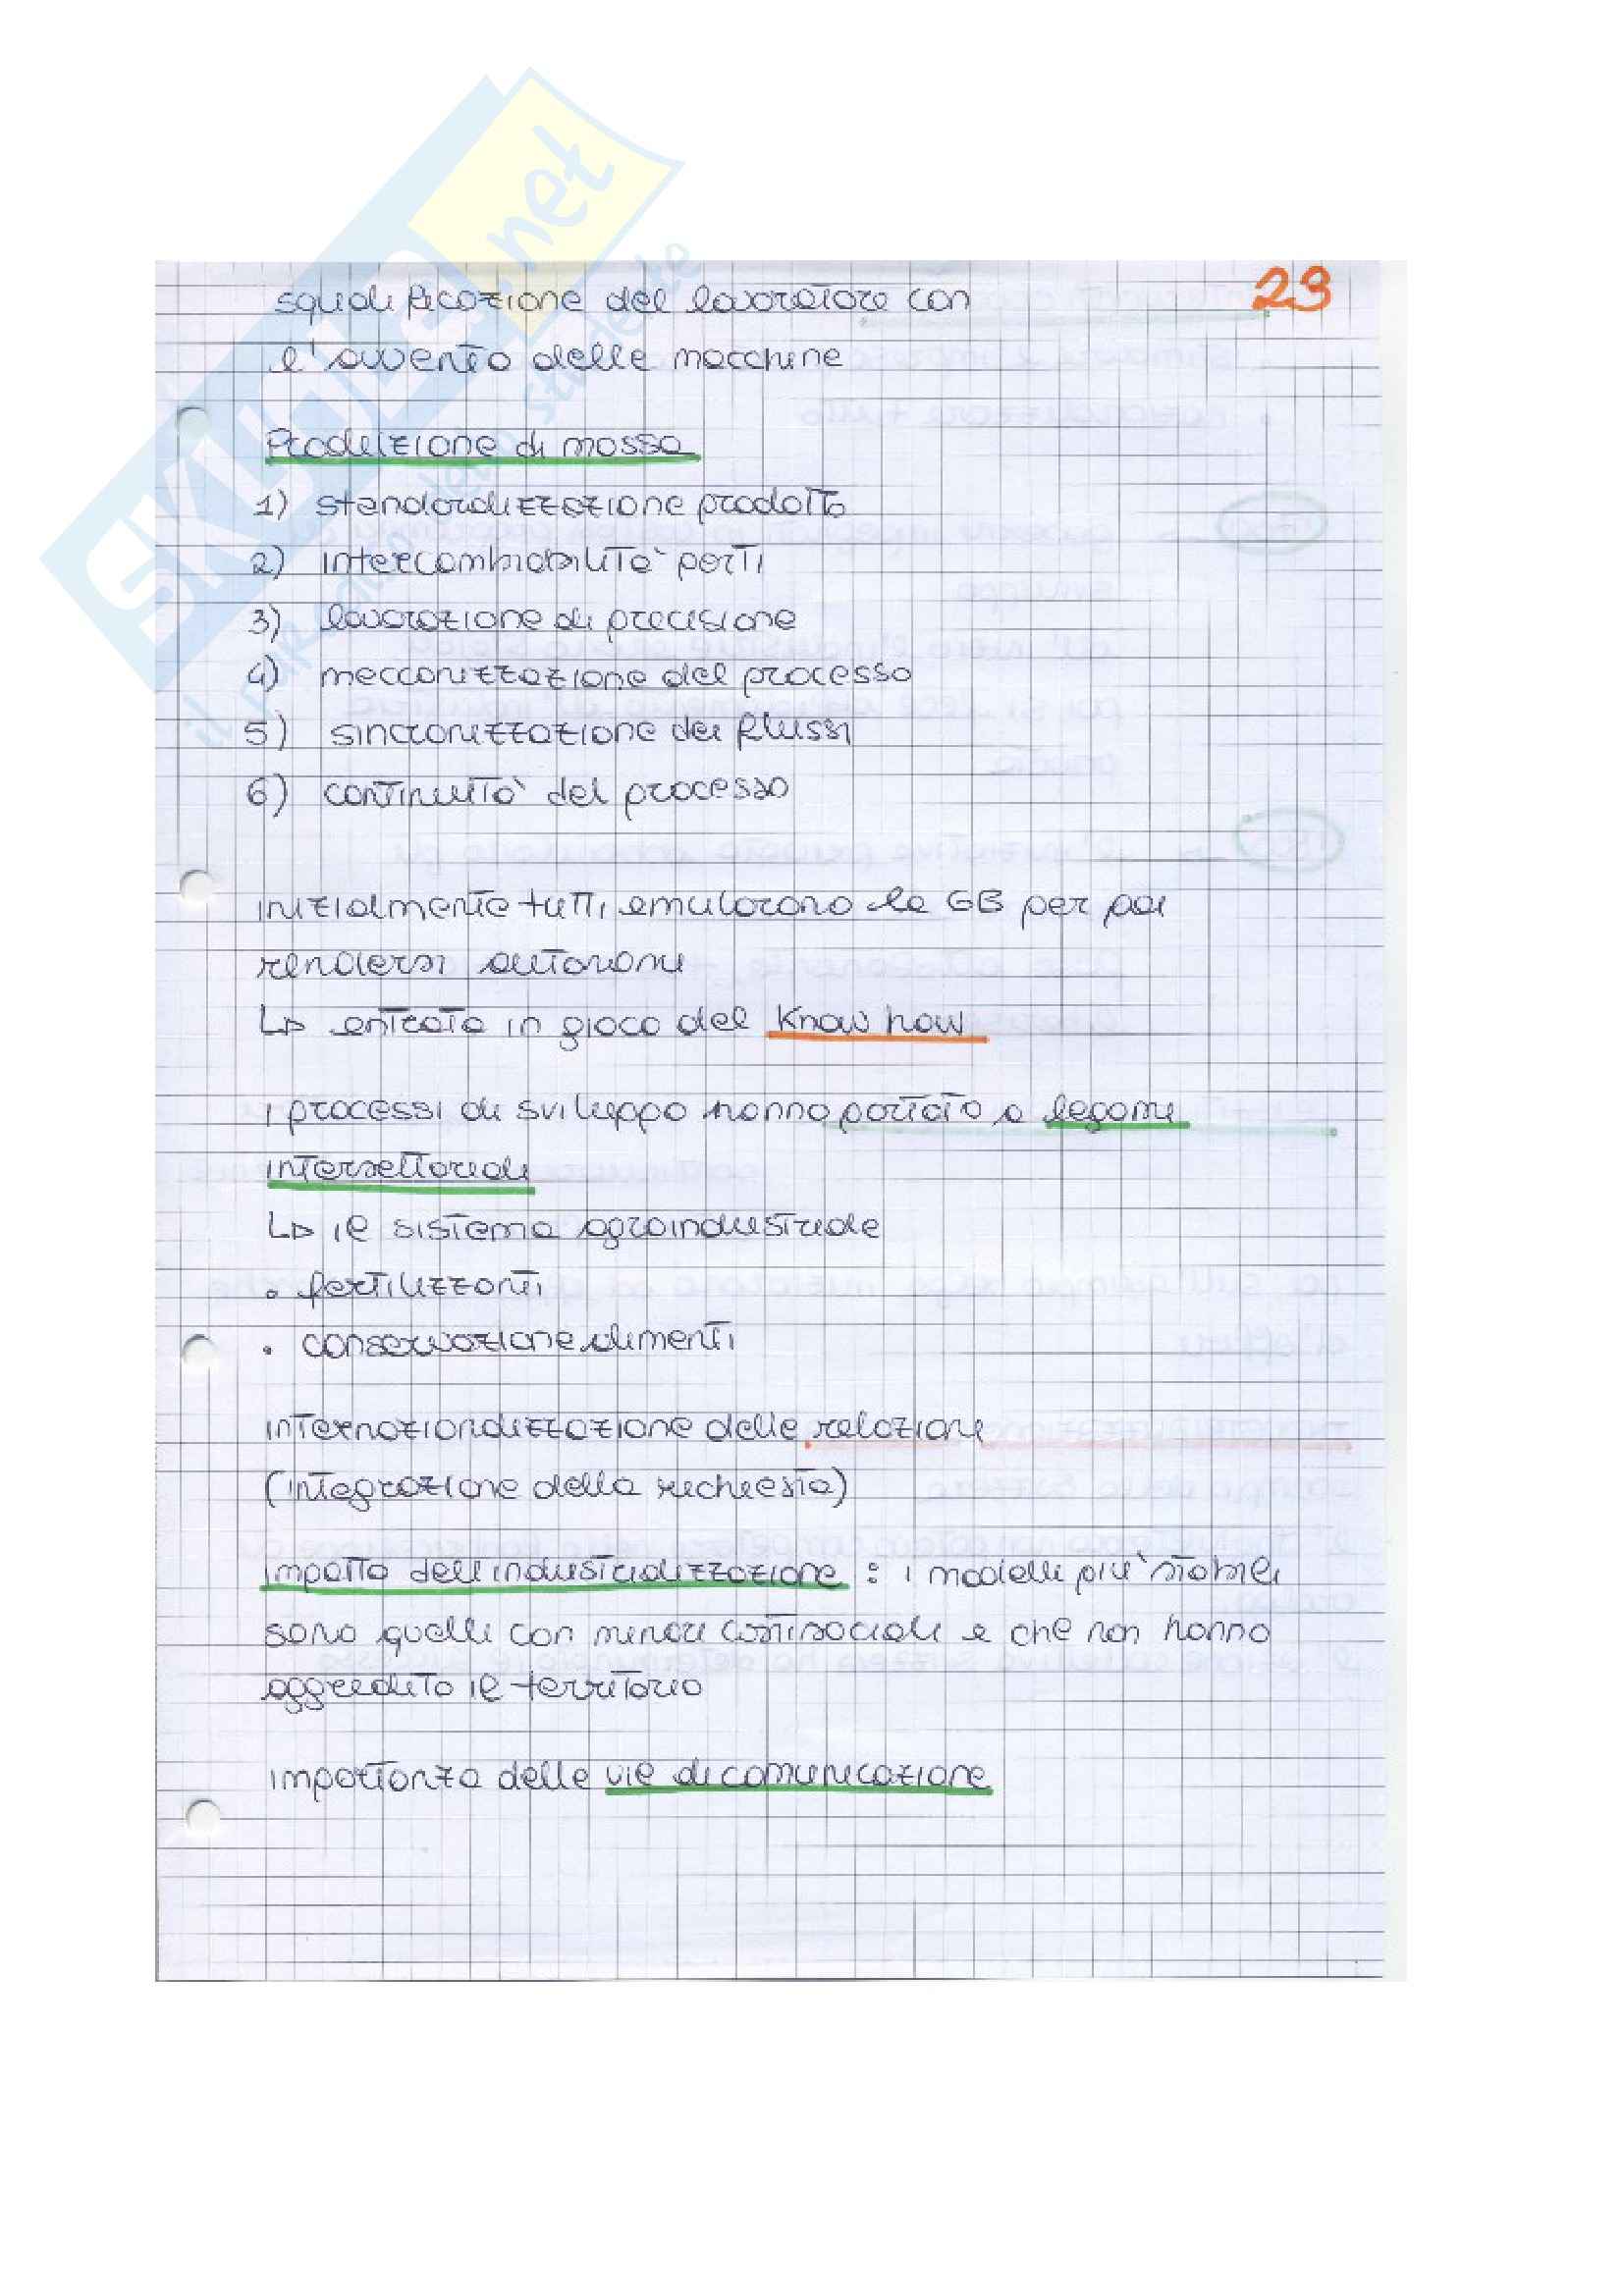 23
squalificazione del lavoratore con
l'avvento delle macchine
Produzione di massa
1) standardizzazione prodotto
2) intercambiabilità parti
3) lavorazione di precisione
4) meccanizzazione del processo
5) sincronizzazione dei flussi
6) continuità del processo
inizialmente tutti emularono la GB per poi
rendersi autonomi
↳ entrata in gioco del Know how
i processi di sviluppo hanno portato a legami
intersettoriali
↳ il sistema agroindustriale
• fertilizzanti
• conservazione alimenti
internazionalizzazione delle relazioni
(integrazione della richiesta)
impatto dell'industrializzazione : i modelli più stabili
sono quelli con minori costi sociali e che non hanno
aggredito il territorio
importanza delle vie di comunicazione
SKUOLA.net